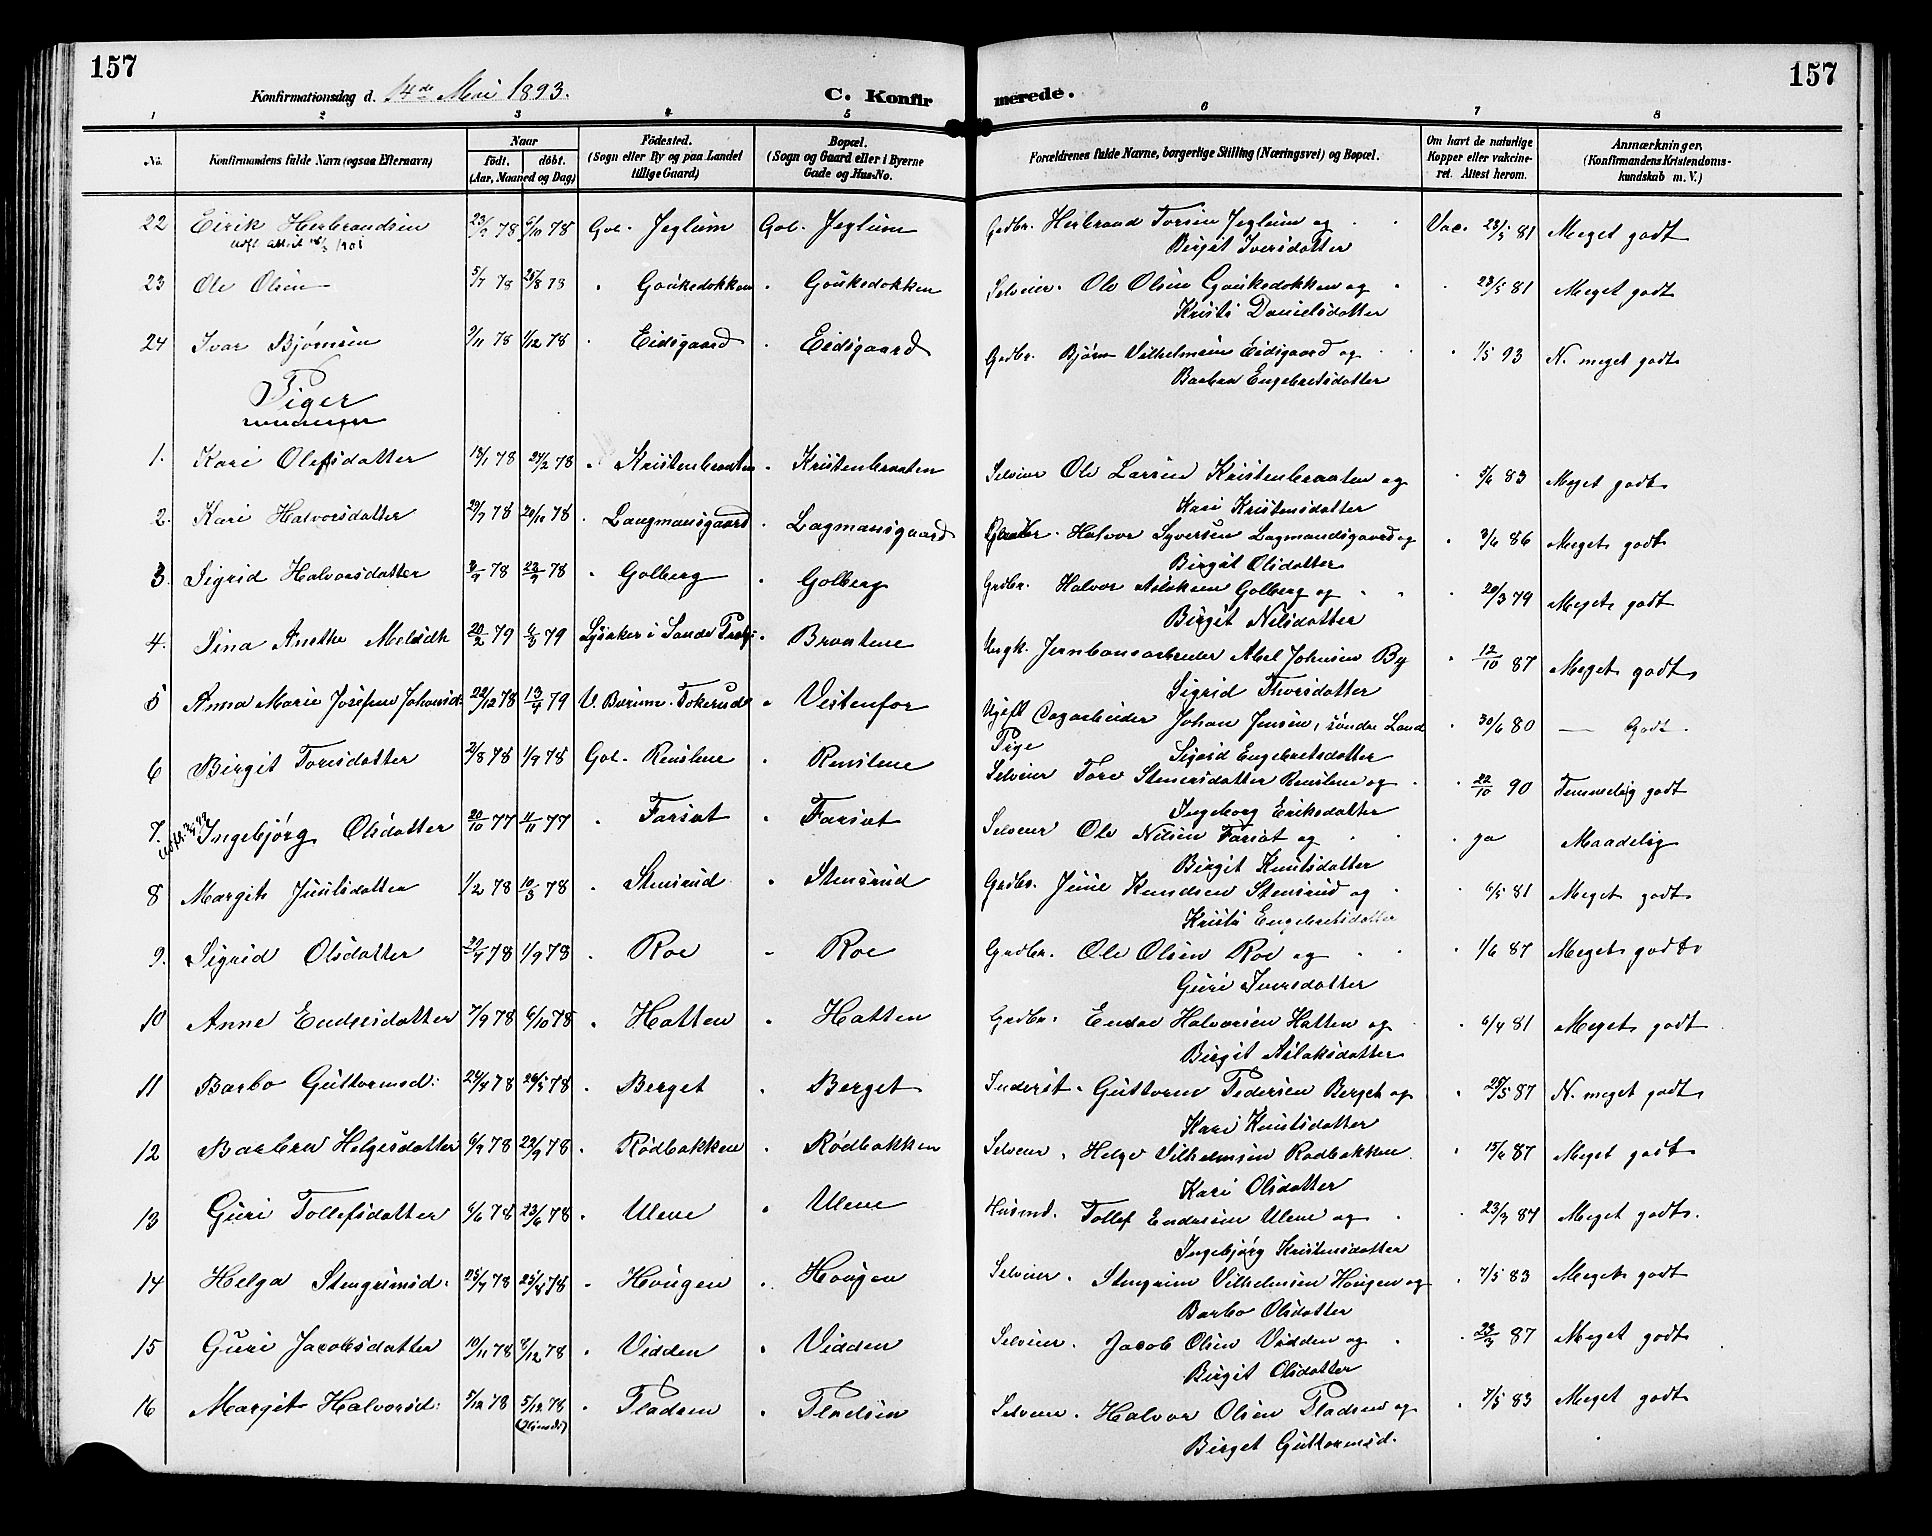 157
157
Konfirmationsdag d. 14de Mai 1893.
C. Konfirmerede.
1 2 3 4 5 6 7 8
No. Konfirmandens fulde Navn (ogsaa Efternavn) Naar født. døbt. (Aar, Maaned og Dag) Fødested. (Sogn eller By og paa Landet tillige Gaard) Bopæl. (Sogn og Gaard eller i Byerne Gade og Hus-No. Forældrenes fulde Navne, borgerlige Stilling (Næringsvei) og Bopæl. Om havt de naturlige Kopper eller vakcineret. Attest herom. Anmærkninger. (Konfirmandens Kristendomskundskab m. V.)
22 Eirik Herbrandsen 23/9 78 6/10 78 Gol. Jeglum Gol. Jeglum Grdbr. Herbrand Torsen Jeglum og Vac. 23/5 81 Meget godt
Udft. Attest 1901 Birgit Iversdatter
23 Ole Olsen 5/7 78 25/8 78 " Goukedokken " Goukedokken Selveier. Ole Olsen Goukedokken og " 23/5 81 Meget godt
Kristi Danielsdatter
24 Ivar Bjørnsen 9/11 78 1/12 78 " Eidsgaard " Eidsgaard Grdbr. Bjørn Vilhelmsen Eidsgaard og " 1/5 93 N. meget godt
Barbra Engebretsdatter
Piger
1. Kari Olefsdatter 18/1 78 24/2 78 " Kristenbraaten " Kristenbraaten Selveier Ole Larsen Kristenbraaten og " 5/6 83 Meget godt
Kari Kristensdatter
2. Kari Halvorsdatter 29/7 78 20/10 78 " Laugmansgaard " Lagmansgaard Halvor Syversen Lagmandsgaard og " 3/6 86 Meget godt
Birgit Olsdatter
3. Sigrid Halvorsdatter 3/9 78 23/9 78 " Golberg " Golberg Grdbr. Halvor Aslaksen Golberg og " 20/3 79 Meget godt
Birgit Nilsdatter
4. Sina Anethe 20/2 79 6/3 79 Lysaker i Sande " Braatene Ungk. Jernbanearbeider Abel Johnsen By " 12/10 87 Meget godt
Sigrid Thorsdatter
5 Anna Marie Josefine Johansd. 22/12 78 13/4 79 V. Bærum. Tokerud " Vestenfor Ugift Dagarbeider Johan Jensen, søndre Land " 30/6 80 — Godt.
Pige Sigrid Engebretsdatter
6 Birgit Toresdatter 2/8 78 1/9 78 Gol. Renslene " Renslene Selveier Tore Stenersdatter Renslene og " 22/10 90 Temmelig godt
Ingeborg Eriksdatter
7. Ingebjørg Olsdatter 20/10 77 4/11 77 " Farsat " Farsat Selveier Ole Nilsen Farsat og " ja Maadelig
Birgit Knutsdatter
8 Margit Juulsdatter 1/2 78 10/3 78 " Stensrud " Stensrud Grdbr. Juul Knudsen Stensrud og " 6/5 81 Meget godt
Kristi Engebretsdatter
9. Sigrid Olsdatter 30/7 78 1/9 78 " Roe " Roe Grdbr. Ole Olsen Roe og " 1/6 87 Meget godt
Guri Iversdatter
10 Anne Endresdatter 7/9 78 6/10 78 " Hatten " Hatten Grdbr. Endre Halvorsen Hatten og " 6/4 81 Meget godt
Birgit Aslaksdatter
11 Barbo Guttormsd: 24/4 78 26/5 78 " Berget " Berget Inderst. Guttorm Pedersen Berget og " 28/5 87 N. meget godt
Kari Knutsdatter
12 Barbra Helgesdatter 6/9 78 22/9 78 " Rødbakken " Rødbakken Selveier. Helge Vilhelmsen Rødbakken " 15/6 87 Meget godt
Kari Olsdatter
13 Guri Tollefsdatter 6/6 78 23/6 78 " Ulene " Ulene Husmd. Tollef Endresen Ulene og " 23/3 87 Meget godt.
Ingebjørg Kristensdatter
14 Helga Stengrimsd: 25/7 78 25/8 78 " Hougen " Hougen Selveier. Stengrim Vilhelmsen Hougen og " 7/5 83 Meget godt
Barbo Olsdatter
15 Guri Jacobsdatter 10/11 78 8/12 78 " Vidden " Vidden Selveier. Jacob Olsen Vidden og " 23/3 87 Meget godt
Birgit Olsdatter
16 Margit Halvorsd: 5/12 78 5/12 78 " Pladsen " Pladsen Selveier. Halvor Olsen Pladsen og " 7/5 83 Meget godt
(Hjemdt) Birget Guttormsd.